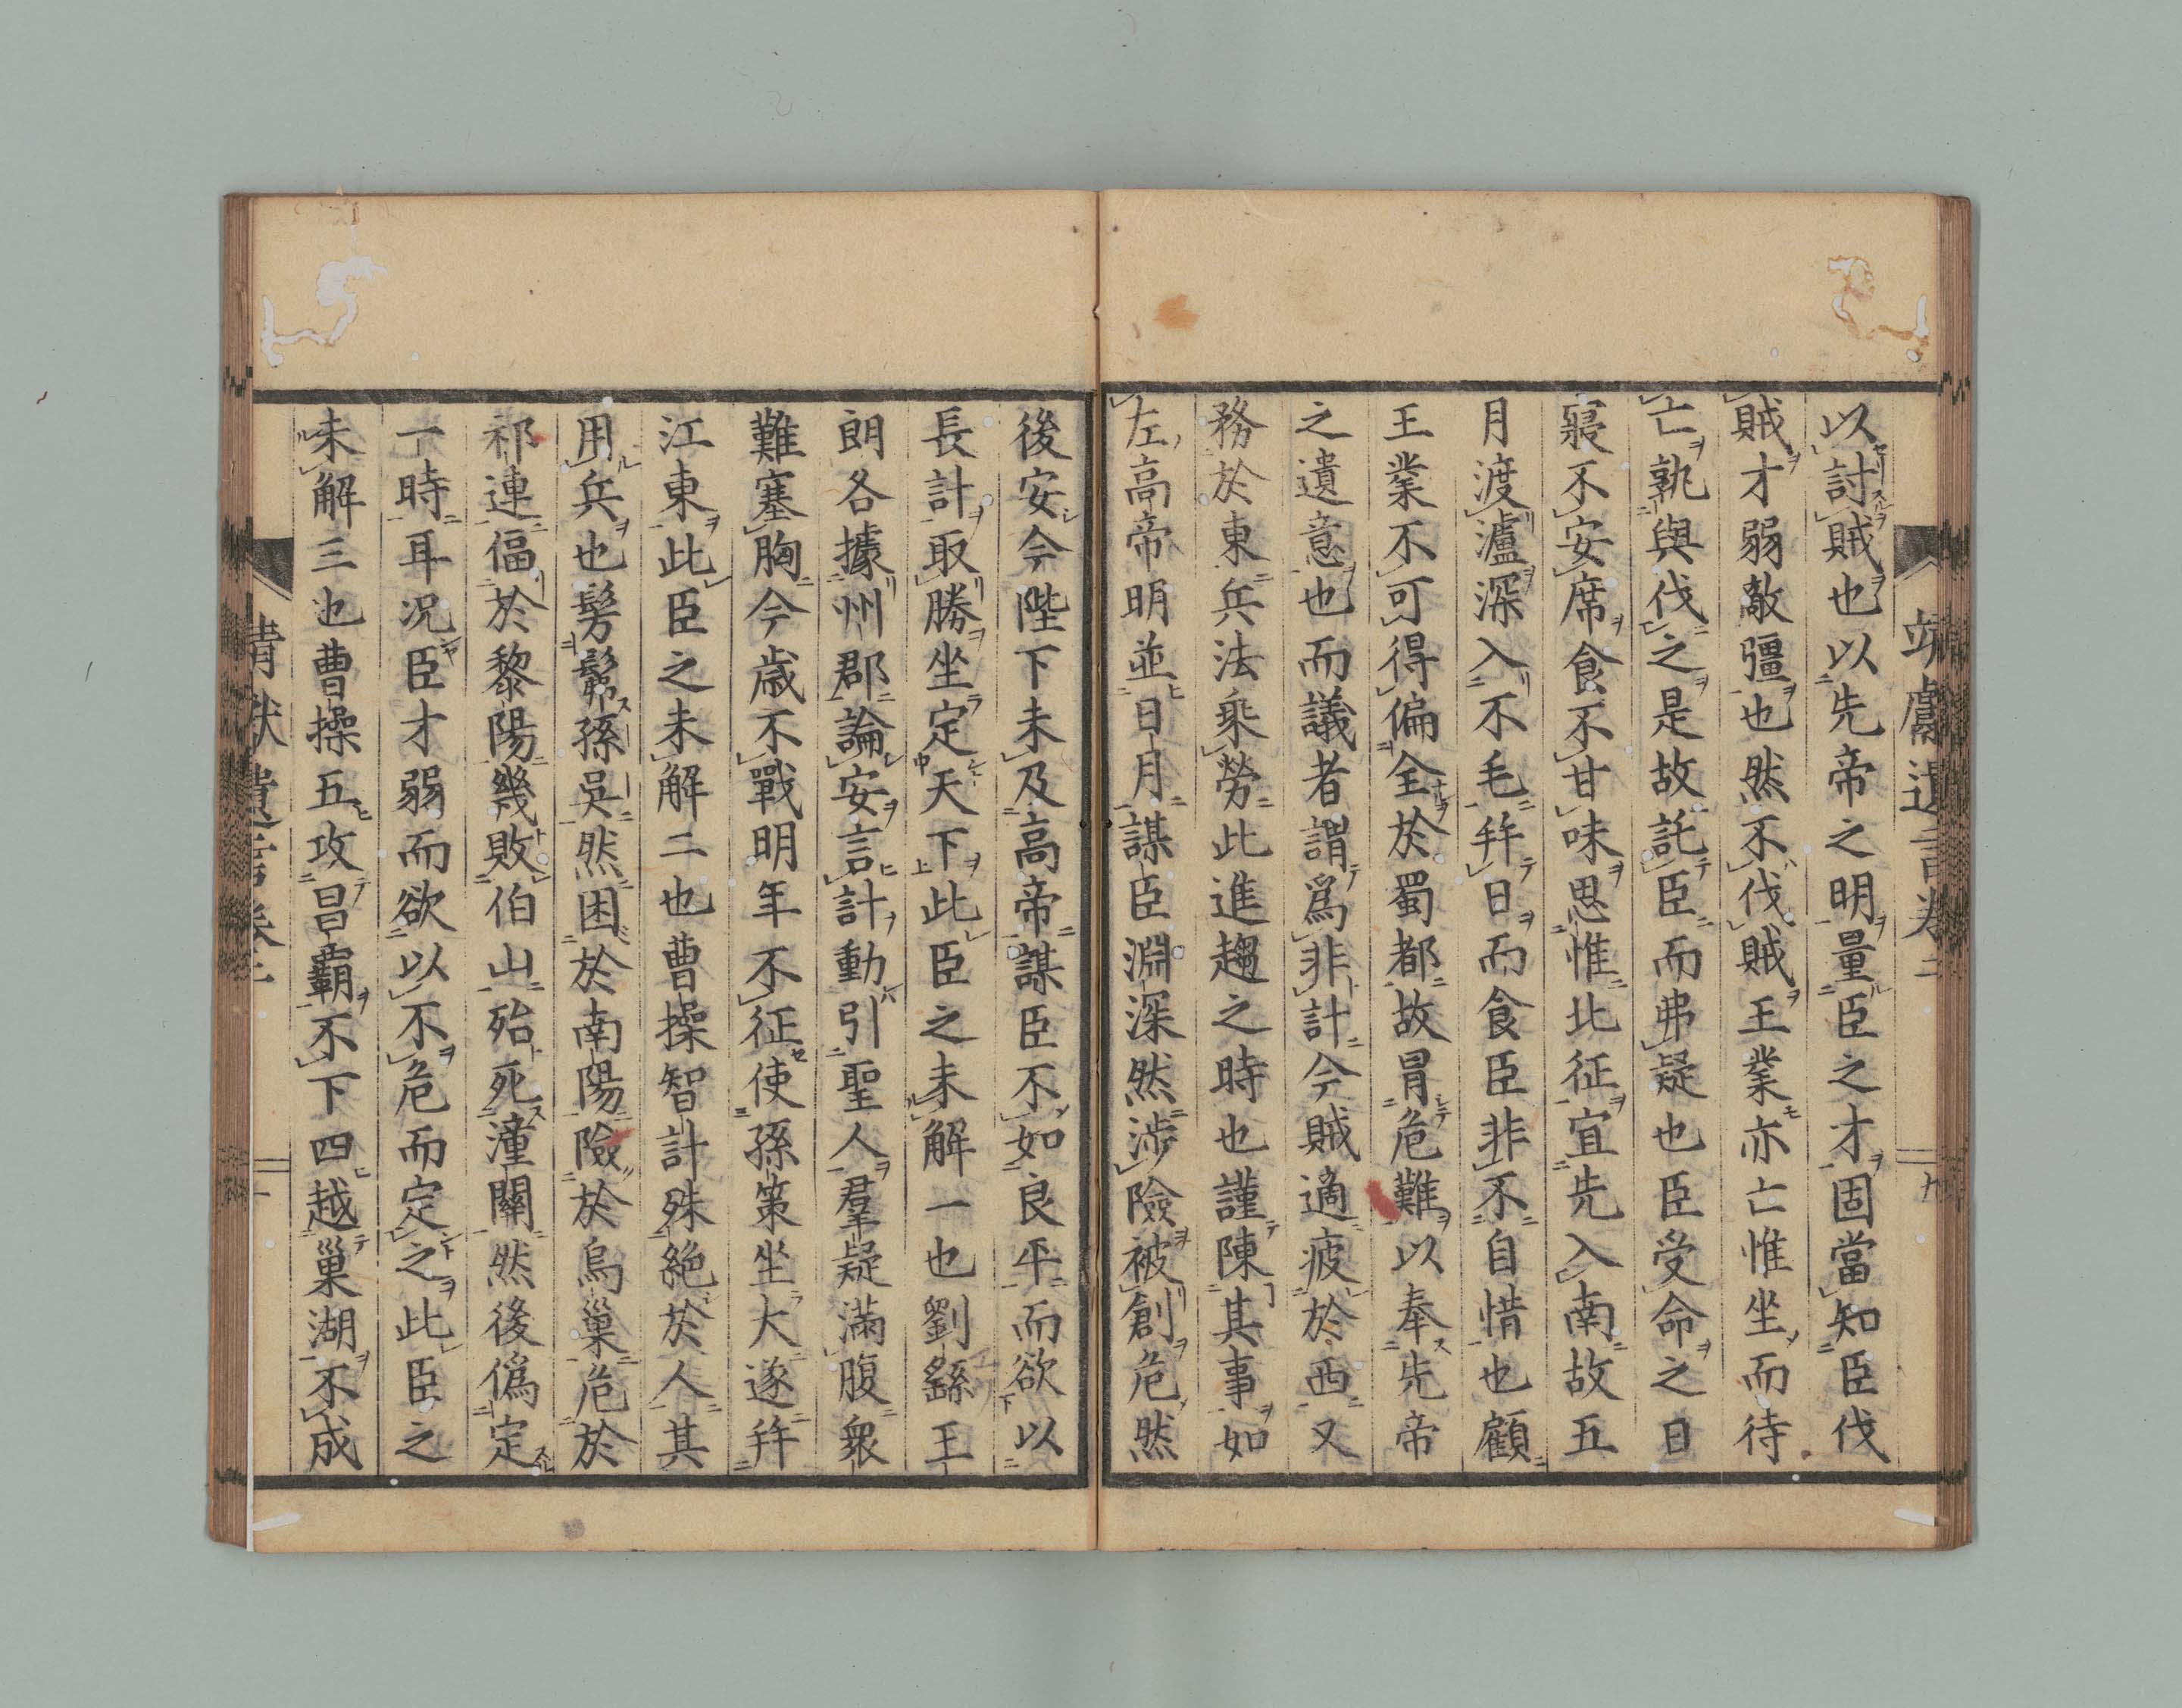 靖獻遺言卷二
九
以討賊也以先帝之明量臣之才固當知臣伐
賊才弱敵彊也然不伐賊王業亦亡惟坐而待
亡孰與伐之是故託臣而弗疑也臣受命之日
寢不安席食不甘味思惟北征宜先入南故五
月渡瀘深入不毛幷日而食臣非不自惜也顧
王業不可得偏全於蜀都故冒危難以奉先帝
之遺意也而議者謂爲非計今賊適疲於西又
務於東兵法乘勞此進趨之時也謹陳其事如
左高帝明並日月謀臣淵深然涉險被創危然
後安今陛下未及高帝謀臣不如良平而欲以
長計取勝坐定天下此臣之未解一也劉繇王
朗各據州郡論安言計動引聖人羣疑滿腹衆
難塞胸今歲不戰明年不征使孫策坐大遂幷
江東此臣之未解二也曹操智計殊絕於人其
用兵也髣髴孫吳然困於南陽險於烏巢危於
祁連偪於黎陽幾敗伯山殆死潼關然後僞定
一時耳况臣才弱而欲以不危而定之此臣之
未解三也曹操五攻昌霸不下四越巢湖不成
靖獻遺言卷二